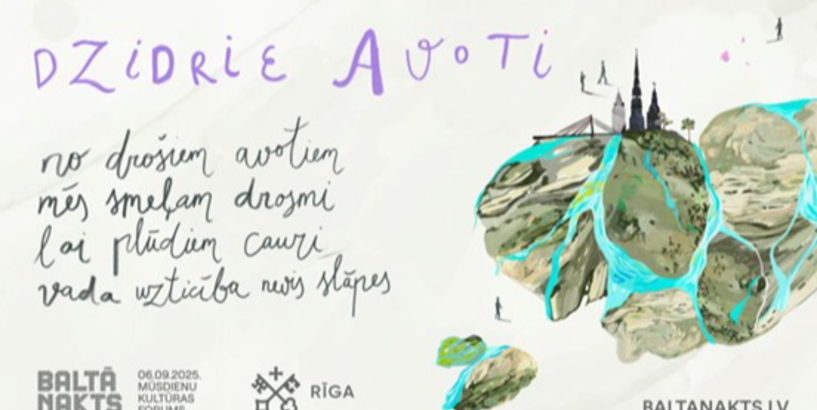 DZiDRiE AvoTi
no drošiem avotiem
mēs smeļam drosmi
lai plūdiem cauri
vada uzticība nevis slāpes
BALTĀ
NAKTS
06.09.2025.
MŪSDIENU
KULTŪRAS
FORUMS
RĪGA
BALTANAKTS.LV